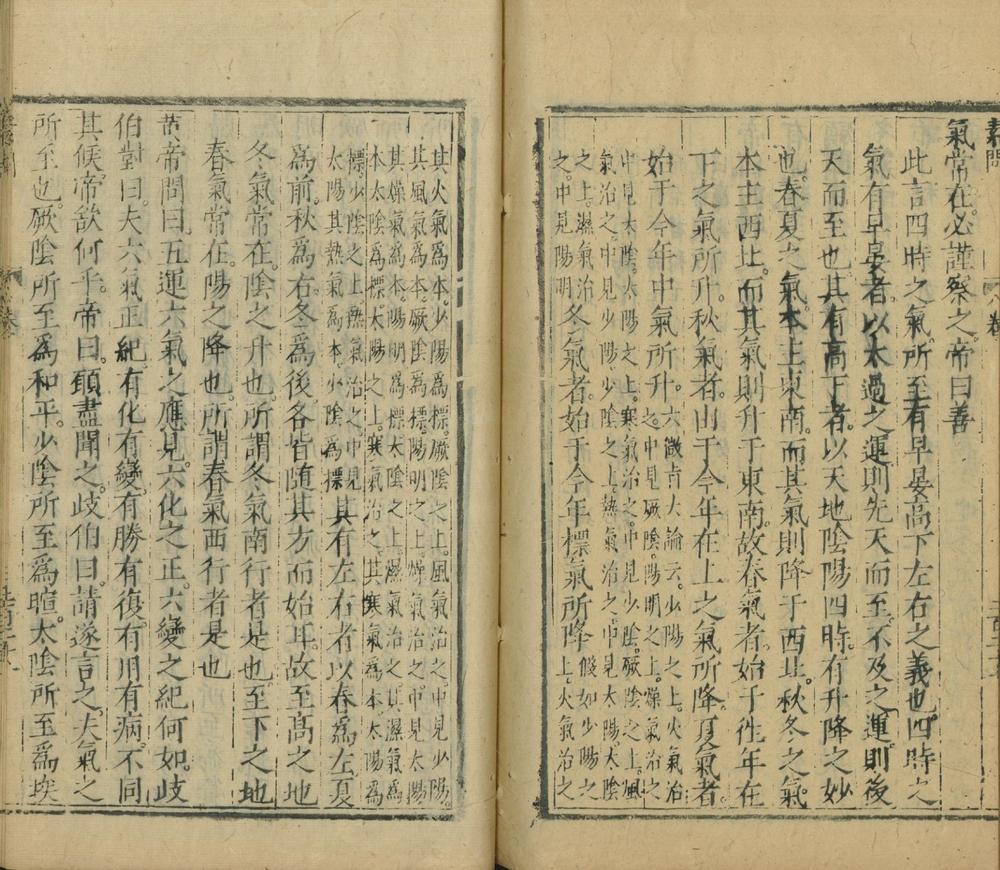 素問
氣常在必謹察之帝曰善
此言四時之氣所至有早晏高下左右之義也四時之
氣有早晏者以太過之運則先天而至不及之運則後
天而至也其有高下者以天地陰陽四時有升降之妙
也春夏之氣本主東南而其氣則降于西北秋冬之氣
本主西北而其氣則升于東南故春氣者始于徃年在
下之氣所升秋氣者由于今年在上之氣所降夏氣者
始于今年中氣所升
六微旨大論云少陽之上火氣治
之中見厥陰陽明之上燥氣治
之中見太陰太陽之上寒氣治之中見少陰厥陰之上風
氣治之中見少陽少陰之上熱氣治之中見太陽太陰
之上濕氣治
之中見陽明
冬氣者始于今年標氣所降
假如少陽之
上火氣治之
其火氣為本少陽為標厥陰之上風氣治之中見少陽
其風氣為本厥陰為標陽明之上燥氣治之中見太陰
其燥氣為本陽明為標太陰之上濕氣治之其濕氣為
本太陰為標太陽之上寒氣治之其寒氣為本太陽為
標少陰之上熱氣治之中見
太陽其熱氣為本少陰為標
其有左右者以春為左夏
為前秋為右冬為後各皆随其方而始耳故至高之地
冬氣常在陰之升也所謂冬氣南行者是也至下之地
春氣常在陽之降也所謂春氣西行者是也
黄帝問曰五運六氣之應見六化之正六變之紀何如歧
伯對曰夫六氣正紀有化有變有勝有復有用有病不同
其候帝欲何乎帝曰願盡聞之歧伯曰請遂言之夫氣之
所至也厥陰所至為和平少陰所至為暄太陰所至為埃